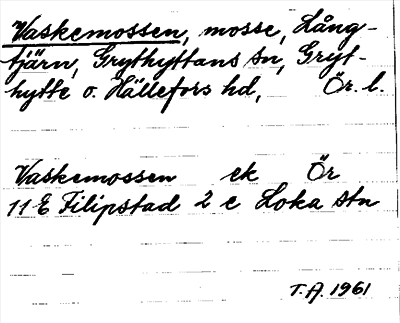 Vaskemossen, mosse, Lång-
tjärn, Grythyttans sn, Gryt-
hytte o. Hällefors hd, Ör. l.
Vaskemossen ek Ör
11 E Filipstad 2 e Loka stn
T.A. 1961